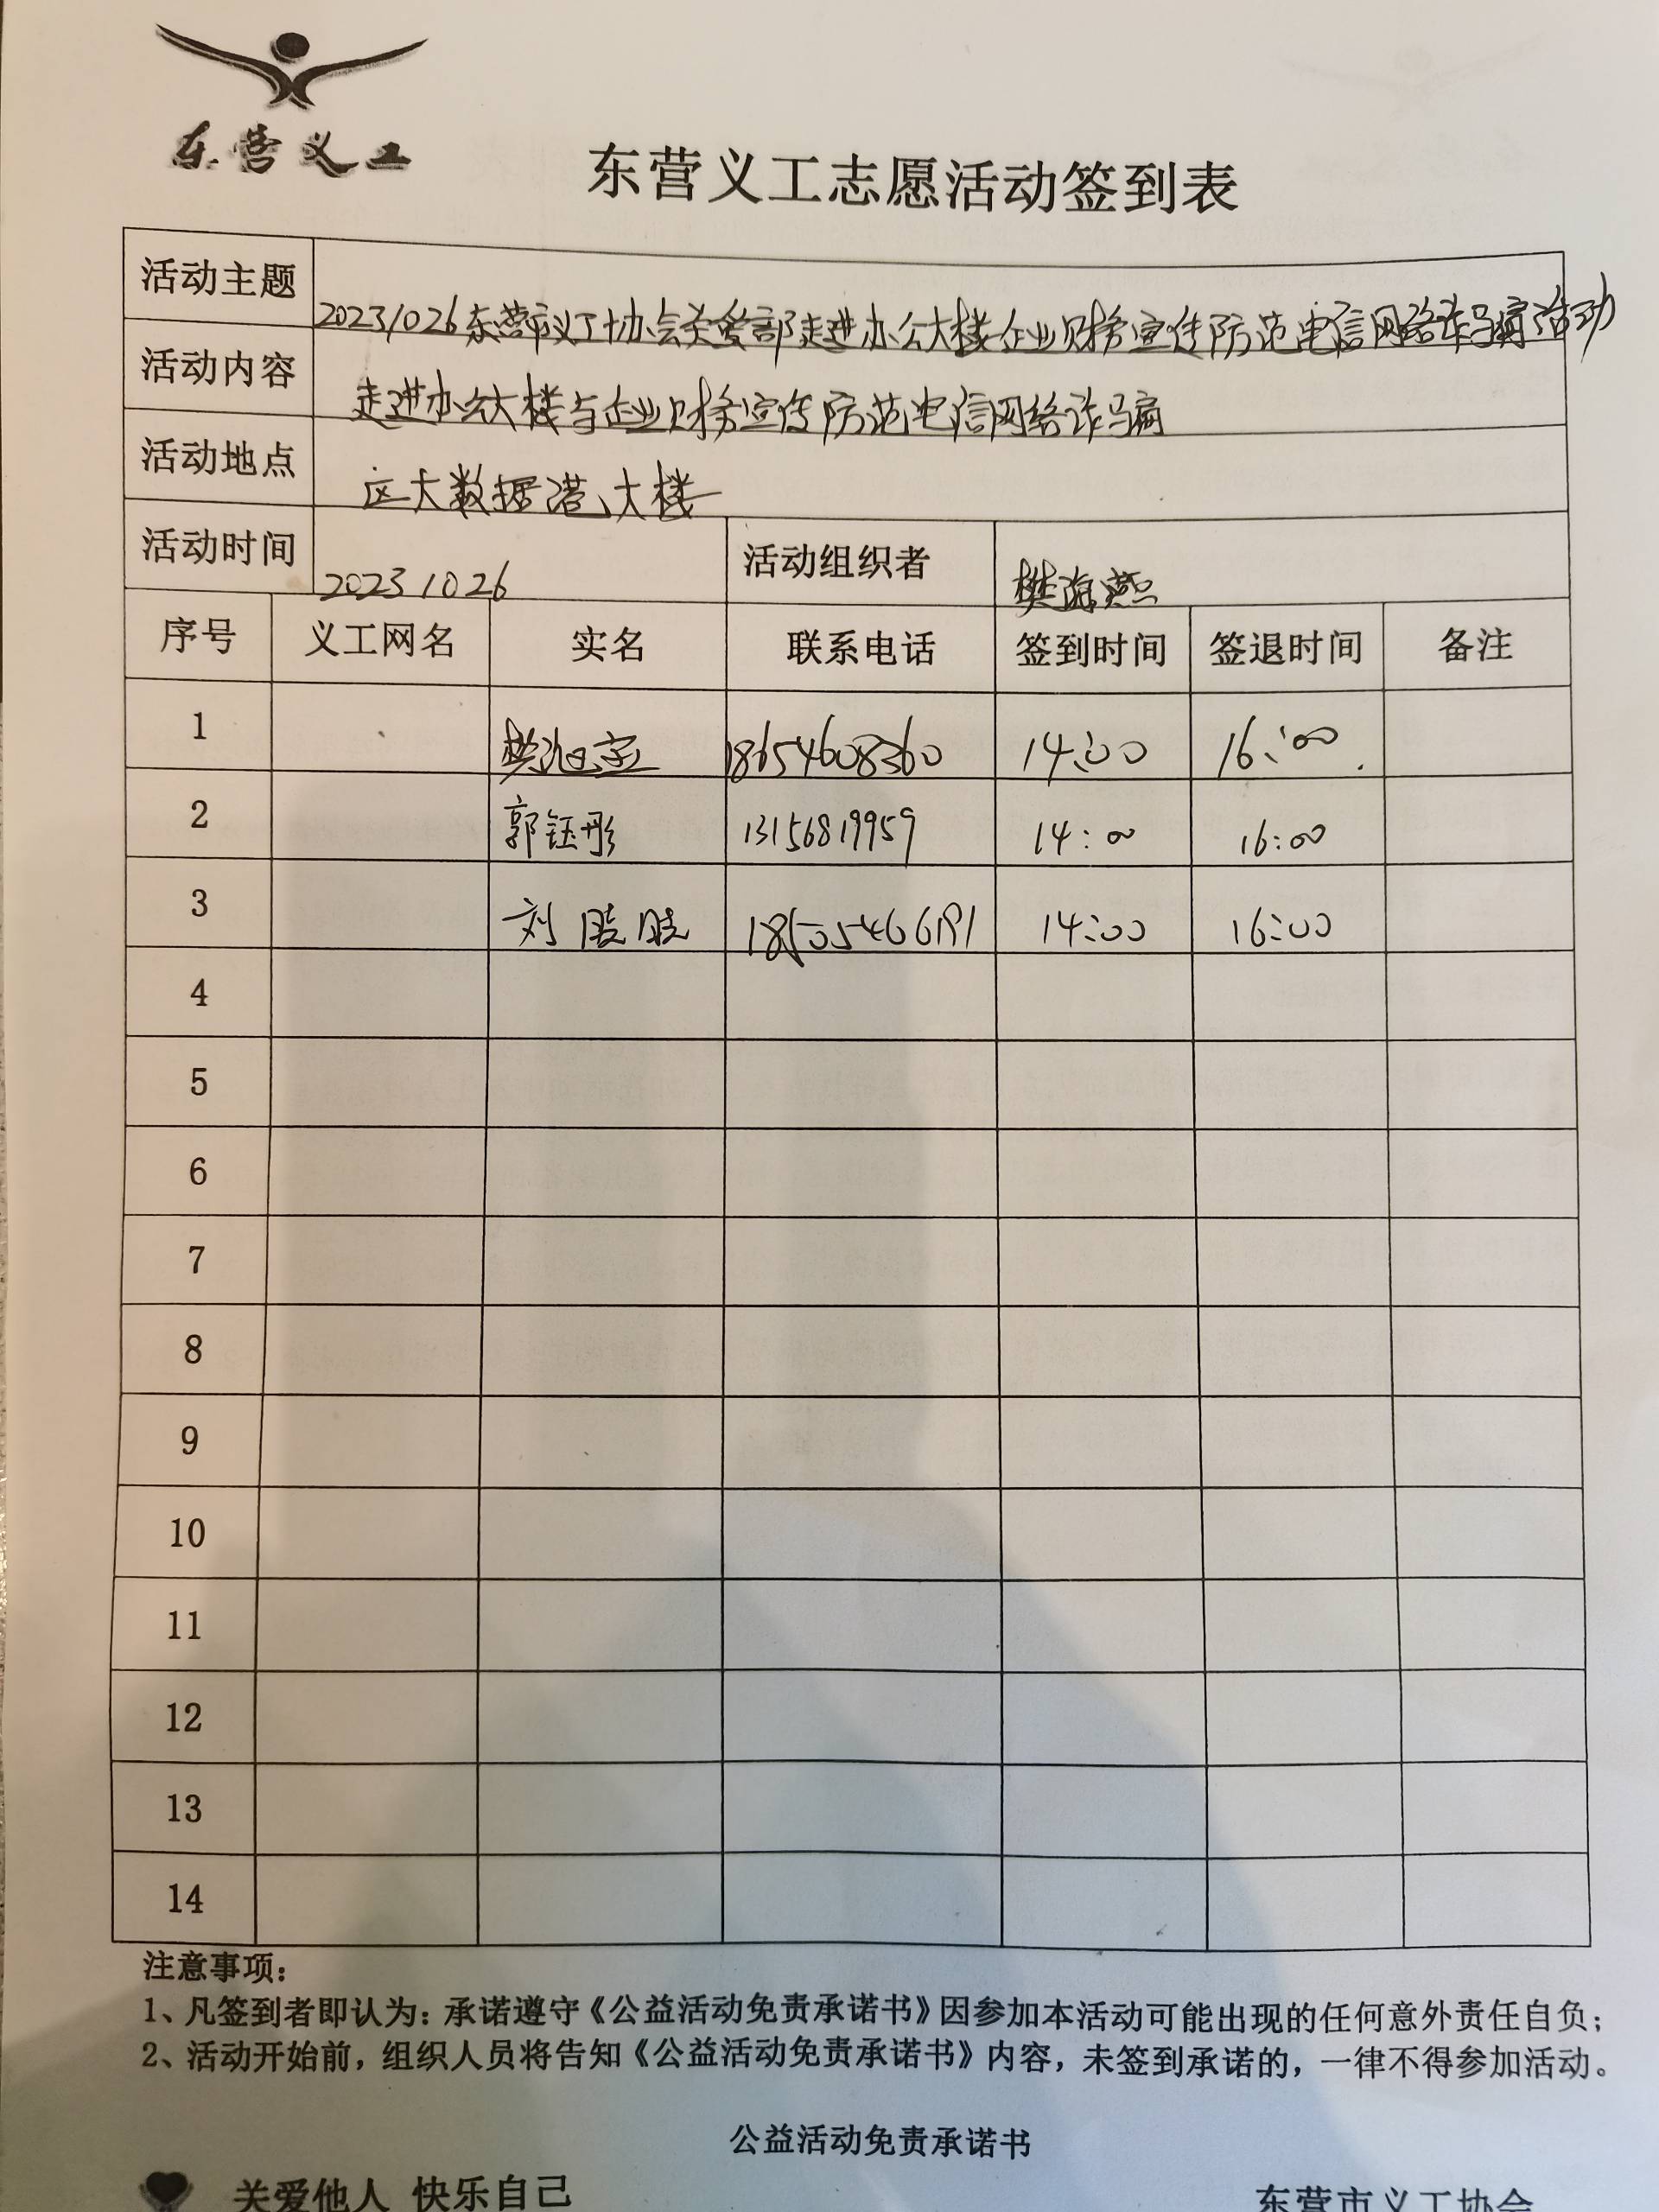 东营义工
东营义工志愿活动签到表
活动主题 20231026东营市义工协会关爱部走进办公大楼企业财务宣传防范电信网络诈骗活动
活动内容 走进办公大楼与企业财务宣传防范电信网络诈骗
活动地点 区大数据港大楼
活动时间 20231026 活动组织者 樊海燕
序号 义工网名 实名 联系电话 签到时间 签退时间 备注
1 18654608360 14:00 16:00
2 郭钰彤 13156819959 14:00 16:00
3 刘 14:00 16:00
4
5
6
7
8
9
10
11
12
13
14
注意事项:
1、凡签到者即认为:承诺遵守《公益活动免责承诺书》因参加本活动可能出现的任何意外责任自负;
2、活动开始前,组织人员将告知《公益活动免责承诺书》内容,未签到承诺的,一律不得参加活动。
公益活动免责承诺书
关爱他人 快乐自己 东营市义工协会